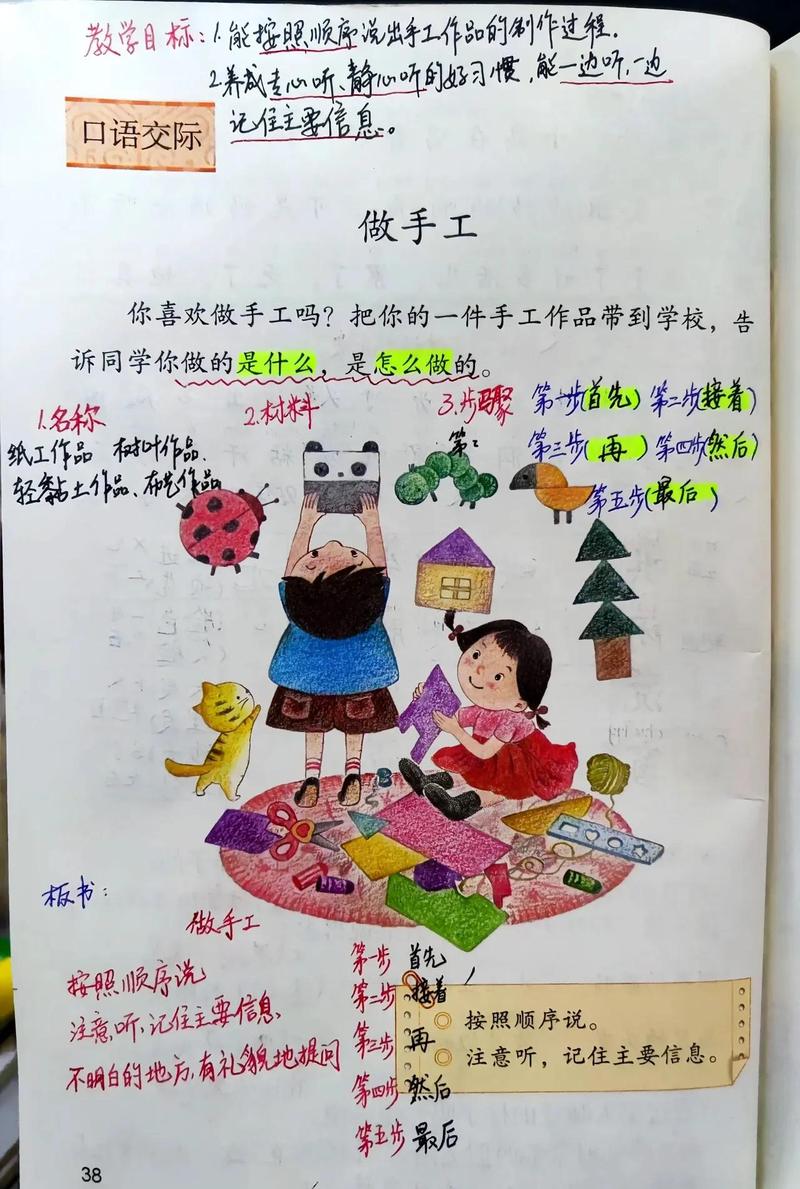 教学目标：1.能按照顺序说出手工作品的制作过程.
2.养成专心听、静心听的好习惯，能一边听，一边
记住主要信息。
口语交际
做手工
你喜欢做手工吗？把你的一件手工作品带到学校，告
诉同学你做的是什么，是怎么做的。
1.名称 2.材料 3.步骤 第一步(首先) 第二步(接着)
纸工作品 树叶作品、 第三步(再) 第四步(然后)
轻黏土作品、布艺作品 第五步(最后)
板书：
做手工
按照顺序说
注意听、记住主要信息、
不明白的地方，有礼貌地提问
第一步 首先
第二步 接着
第三步 再
第四步 然后
第五步 最后
按照顺序说。
注意听，记住主要信息。
38